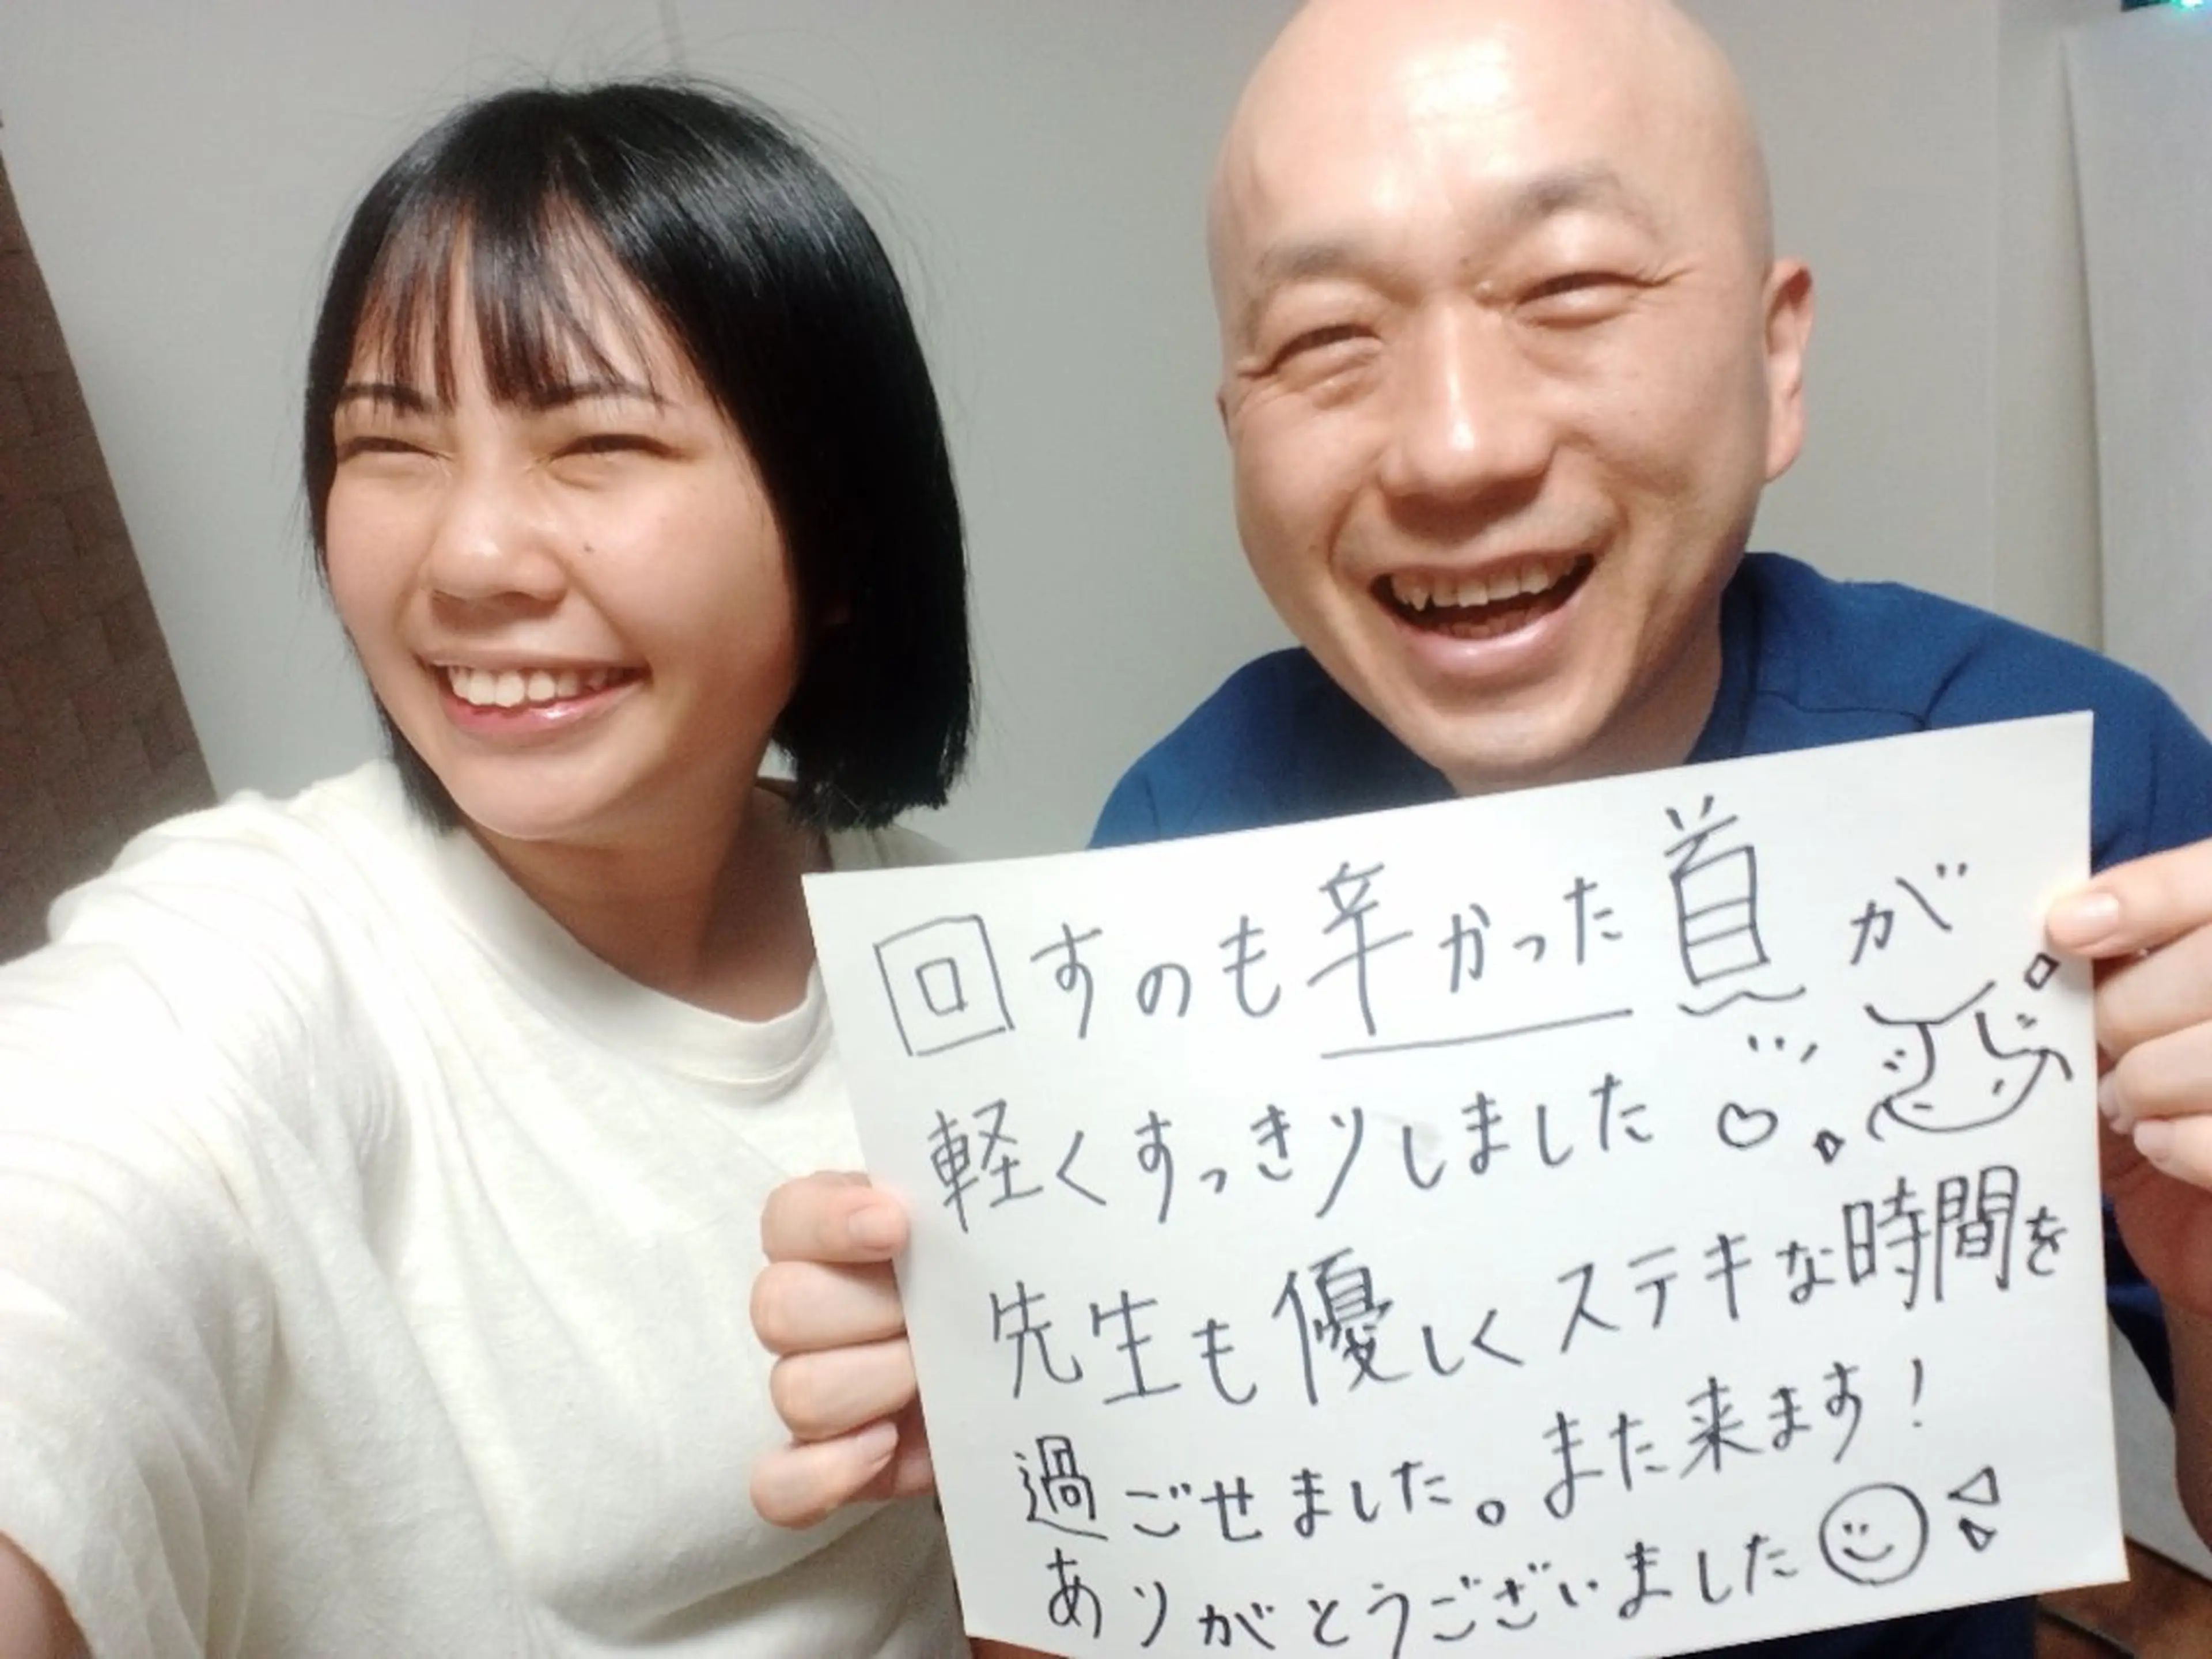 回すのも辛かった首が
軽くすっきりしました
先生も優しくステキな時間を
過ごせました。また来ます!
ありがとうございました